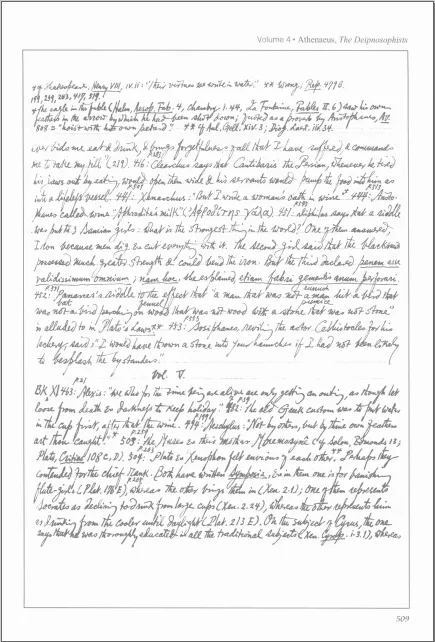 Volume 4 • Athenaeus, The Deipnosophists
4* Shakespeare, Henry VIII, IV.ii: "Their virtues we write in water." 4* Wrong; Rep. 479 B.
199, 239, 203, 417, 519.
4 The eagle in the fable (Halm, Aesop. Fab. 4, Chambry i. 44, La Fontaine, Fables II.6) saw his own
feathers in the arrow by which he had been shot down; quoted as a proverb by Aristophanes, Av.
808 = "hoist with his own petard." 4* Cf. Aul. Gell. XIV. 3; Diog. Laert. iii. 34.
woe bids me eat & drink, & brings forgetfulness of all that I have suffered & commands
me to take my fill" (219). 416: Clearchus says that Cantibaris the Persian, whenever he tired
his jaws out by eating, would open them wide & his servants would pump the food into him as
into a lifeless vessel. 441: Xenarchus: "But I write a woman's oath in wine." 444: Aristo-
phanes called wine "Aphrodite's milk" (Ἀφροδίτης γάλα). 451: Diphilus says that a riddle
was put to 3 Samian girls: What is the strongest thing in the world? One of them answered,
Iron because men dig & cut everything with it. The second girl said that the blacksmith
possessed much greater strength & could bend the iron. But the third declared penem esse
validissimum omnium; nam hoc, she explained, etiam fabri gemebundi anum perforari.
452: Panarces's riddle to the effect that 'a man that was not a man hit a bird that
was not a bird perching on wood that was not wood with a stone that was not stone'
is alluded to in Plato's Laws** 453: Sosiphanes, reviling the actor Cephisocles for his
lechery, said: "I would have thrown a stone into your haunches if I had not been likely
to besplash the bystanders."
Vol. V.
BK XI 463: Alexis: "We who for the time being are alive are only getting an outing, as though let
loose from death & darkness to keep holiday." 482: The old Greek custom was to put water
in the cup first, after that the wine. 494: Aeschylus: "Not by others, but by thine own feathers
art thou caught." 503: The Muses & their Mother Mnemosyne Cf. Solon, Edmonds 13;
Plato, Critias 108 C, D. 504: Plato & Xenophon felt envious of each other.** Perhaps they
contended for the chief rank. Both have written Symposia, & in them one is for banishing
flute-girls (Plat. 176 E), whereas the other brings them in (Xen. 2.1); One of them represents
Socrates as declining to drink from large cups (Xen. 2.24), whereas the other represents him
as drinking from the cooler until daylight (Plat. 213 E). On the subject of Cyrus, the one
says that he was thoroughly educated in all the traditional subjects (Xen. Cyrop. i.3.1), whereas
509